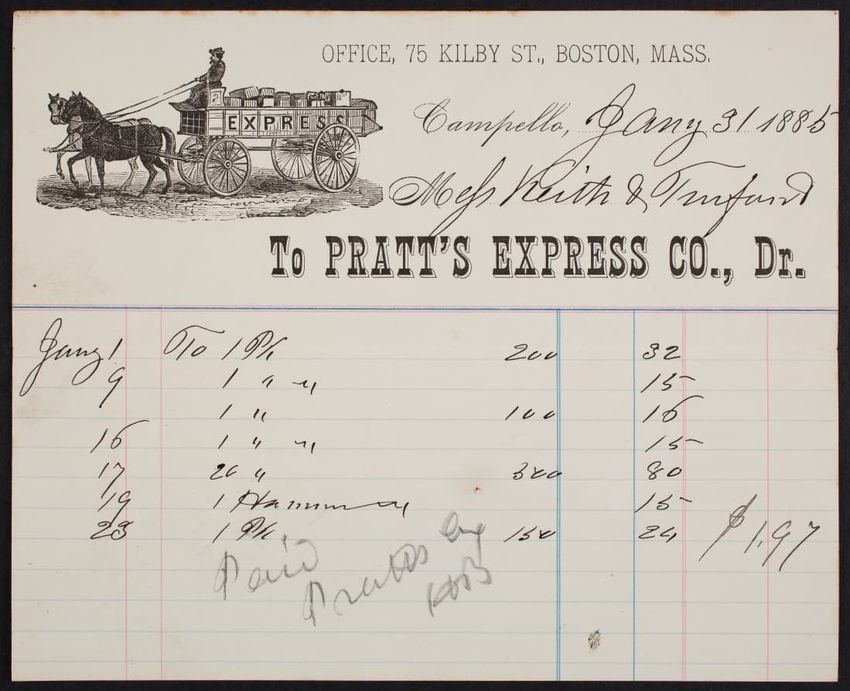 OFFICE, 75 KILBY ST., BOSTON, MASS.
EXPRESS
Campello, Jany 31 1885
Mess Keith &
To PRATT'S EXPRESS CO., Dr.
Jany 1 To 1 Pk 200 32
9 1 " " 15
1 " 100 16
16 1 " " 15
17 20 " 80
19 1 15
23 1 Pk 150 24 $1.97
Paid
Pratts